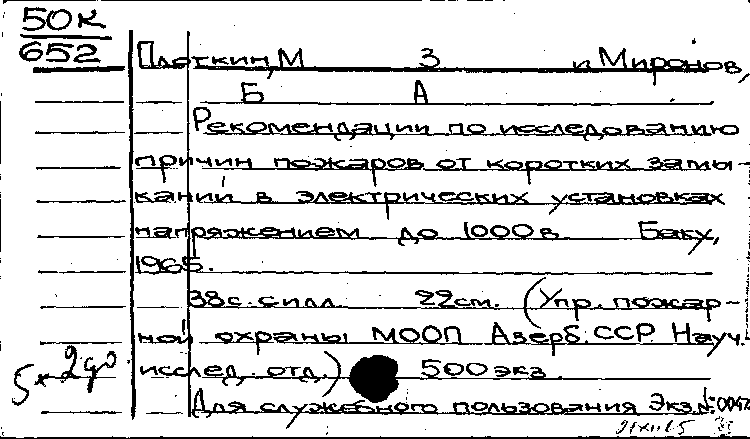 50К
652
Плоткин, М З и Миронов,
Б А
Рекомендации по исследованию
причин пожаров от коротких замы-
каний в электрических установках
напряжением до 1000 в Баку,
1965.
38с. с илл. 22см. (Упр. пожар-
ной охраны МООП Азерб. ССР Науч.
исслед. отд.) 500 экз.
Для служебного пользования Экз.№